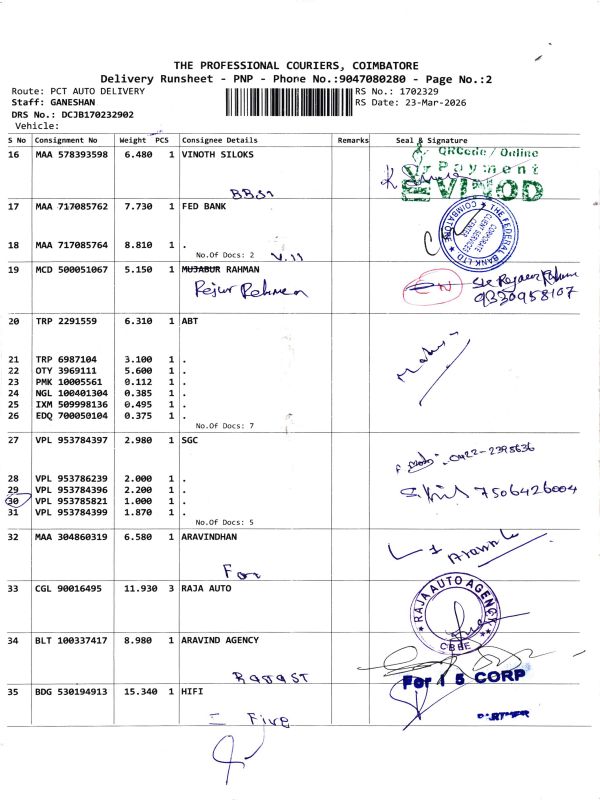 THE PROFESSIONAL COURIERS, COIMBATORE
Delivery Runsheet - PNP - Phone No.:9047080280 - Page No.:2
Route: PCT AUTO DELIVERY
RS No.: 1702329
Staff: GANESHAN
RS Date: 23-Mar-2026
DRS No.: DCJB170232902
Vehicle:
S No Consignment No Weight PCS Consignee Details Remarks Seal & Signature
16 MAA 578393598 6.480 1 VINOTH SILOKS
QRCode / Online
Payment
VINOD
17 MAA 717085762 7.730 1 FED BANK
THE FEDERAL BANK LTD COIMBATORE
CORPORATE CLIENT SERVICES CENTER
18 MAA 717085764 8.810 1 .
No.Of Docs: 2
19 MCD 500051067 5.150 1 MUJABUR RAHMAN
Rejur Rehman
9330958107
20 TRP 2291559 6.310 1 ABT
21 TRP 6987104 3.100 1 .
22 OTY 3969111 5.600 1 .
23 PMK 10005561 0.112 1 .
24 NGL 100401304 0.385 1 .
25 IXM 509998136 0.495 1 .
26 EDQ 700050104 0.375 1 .
No.Of Docs: 7
27 VPL 953784397 2.980 1 SGC
0422-2395636
28 VPL 953786239 2.000 1 .
29 VPL 953784396 2.200 1 .
7506426004
30 VPL 953785821 1.000 1 .
31 VPL 953784399 1.870 1 .
No.Of Docs: 5
32 MAA 304860319 6.580 1 ARAVINDHAN
For
33 CGL 90016495 11.930 3 RAJA AUTO
RAJA AUTO AGENCY
CBE
34 BLT 100337417 8.980 1 ARAVIND AGENCY
For I 5 CORP
35 BDG 530194913 15.340 1 HIFI
I Five